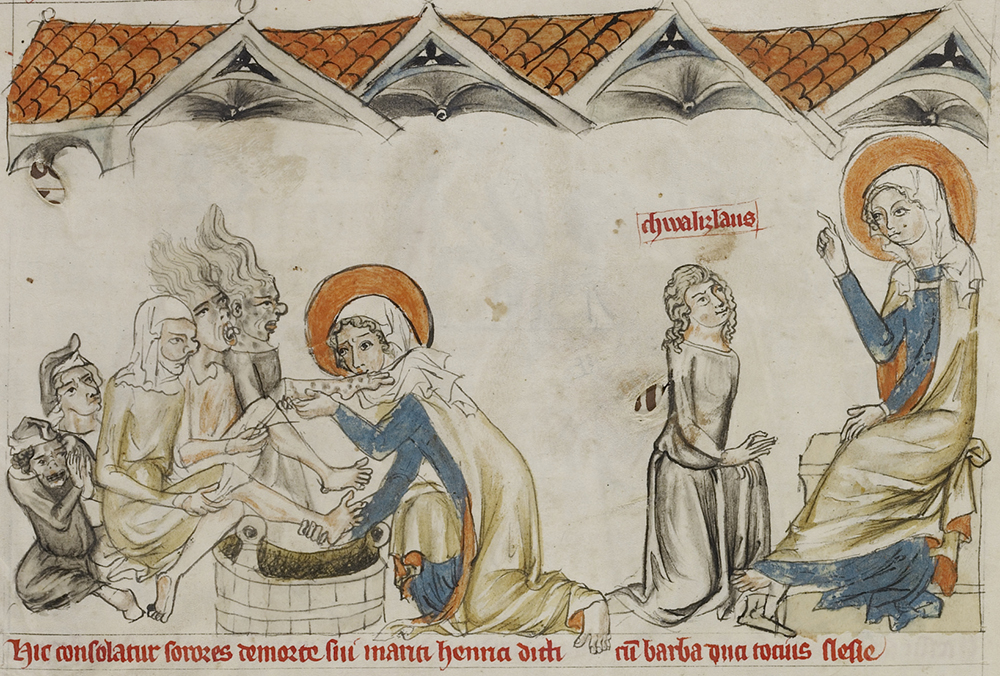 chwalizlaus
Hic consolatur sorores de morte sui mariti henrici dicti cū barba duci tocius slesie